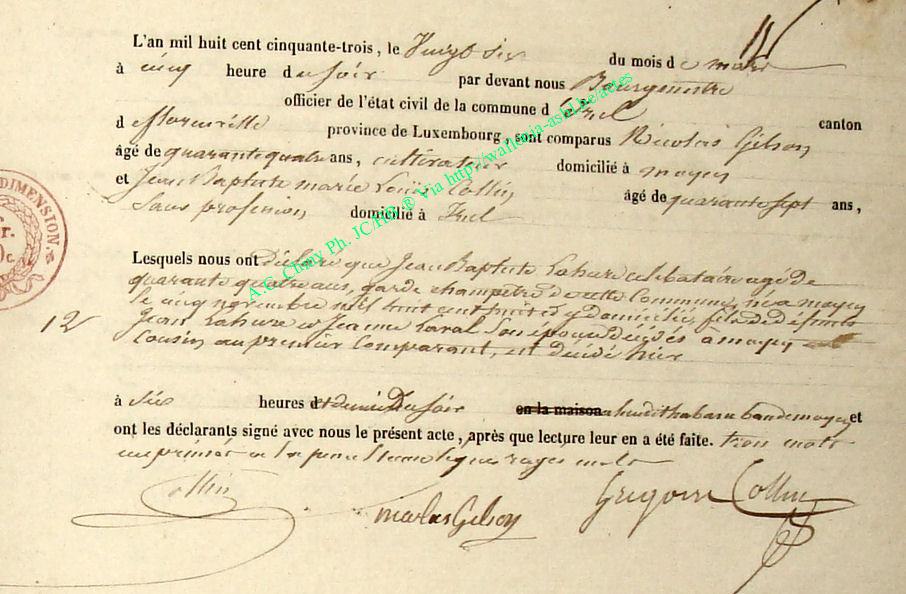 L'an mil huit cent cinquante-trois, le Vingt six du mois d e mars
à cinq heure du soir par devant nous Bourgmestre
officier de l'état civil de la commune d Izel canton
d e florenville province de Luxembourg, sont comparus Nicolas Gilson
âgé de quarante quatre ans, cultivateur domicilié à moyen
et Jean Baptiste marie Louis Collin âgé de quarante sept ans,
Sans profession domicilié à Izel
Lesquels nous ont déclaré que Jean Baptiste Lahure celibataire agé de
quarante quatre ans, garde champêtre de cette Commune, né a moyen
le cinq novembre mil huit cent huit et y domicilié, fils de défunts
12
Jean Lahure et Jeanne Laval Son épouse décédés à moyen
Cousin au premier Comparant, est décédé hier
à Six heures et demie du soir en la maison au lieu dit bande moyen et
ont les déclarants signé avec nous le présent acte, après que lecture leur en a été faite. trois mots
imprimés
Collin
Nicolas Gilson
Grégoire Collin
DIMENSION.
A.G. Chiny Ph. JC/HB ® Via http://wallonia-asbl.be/actes